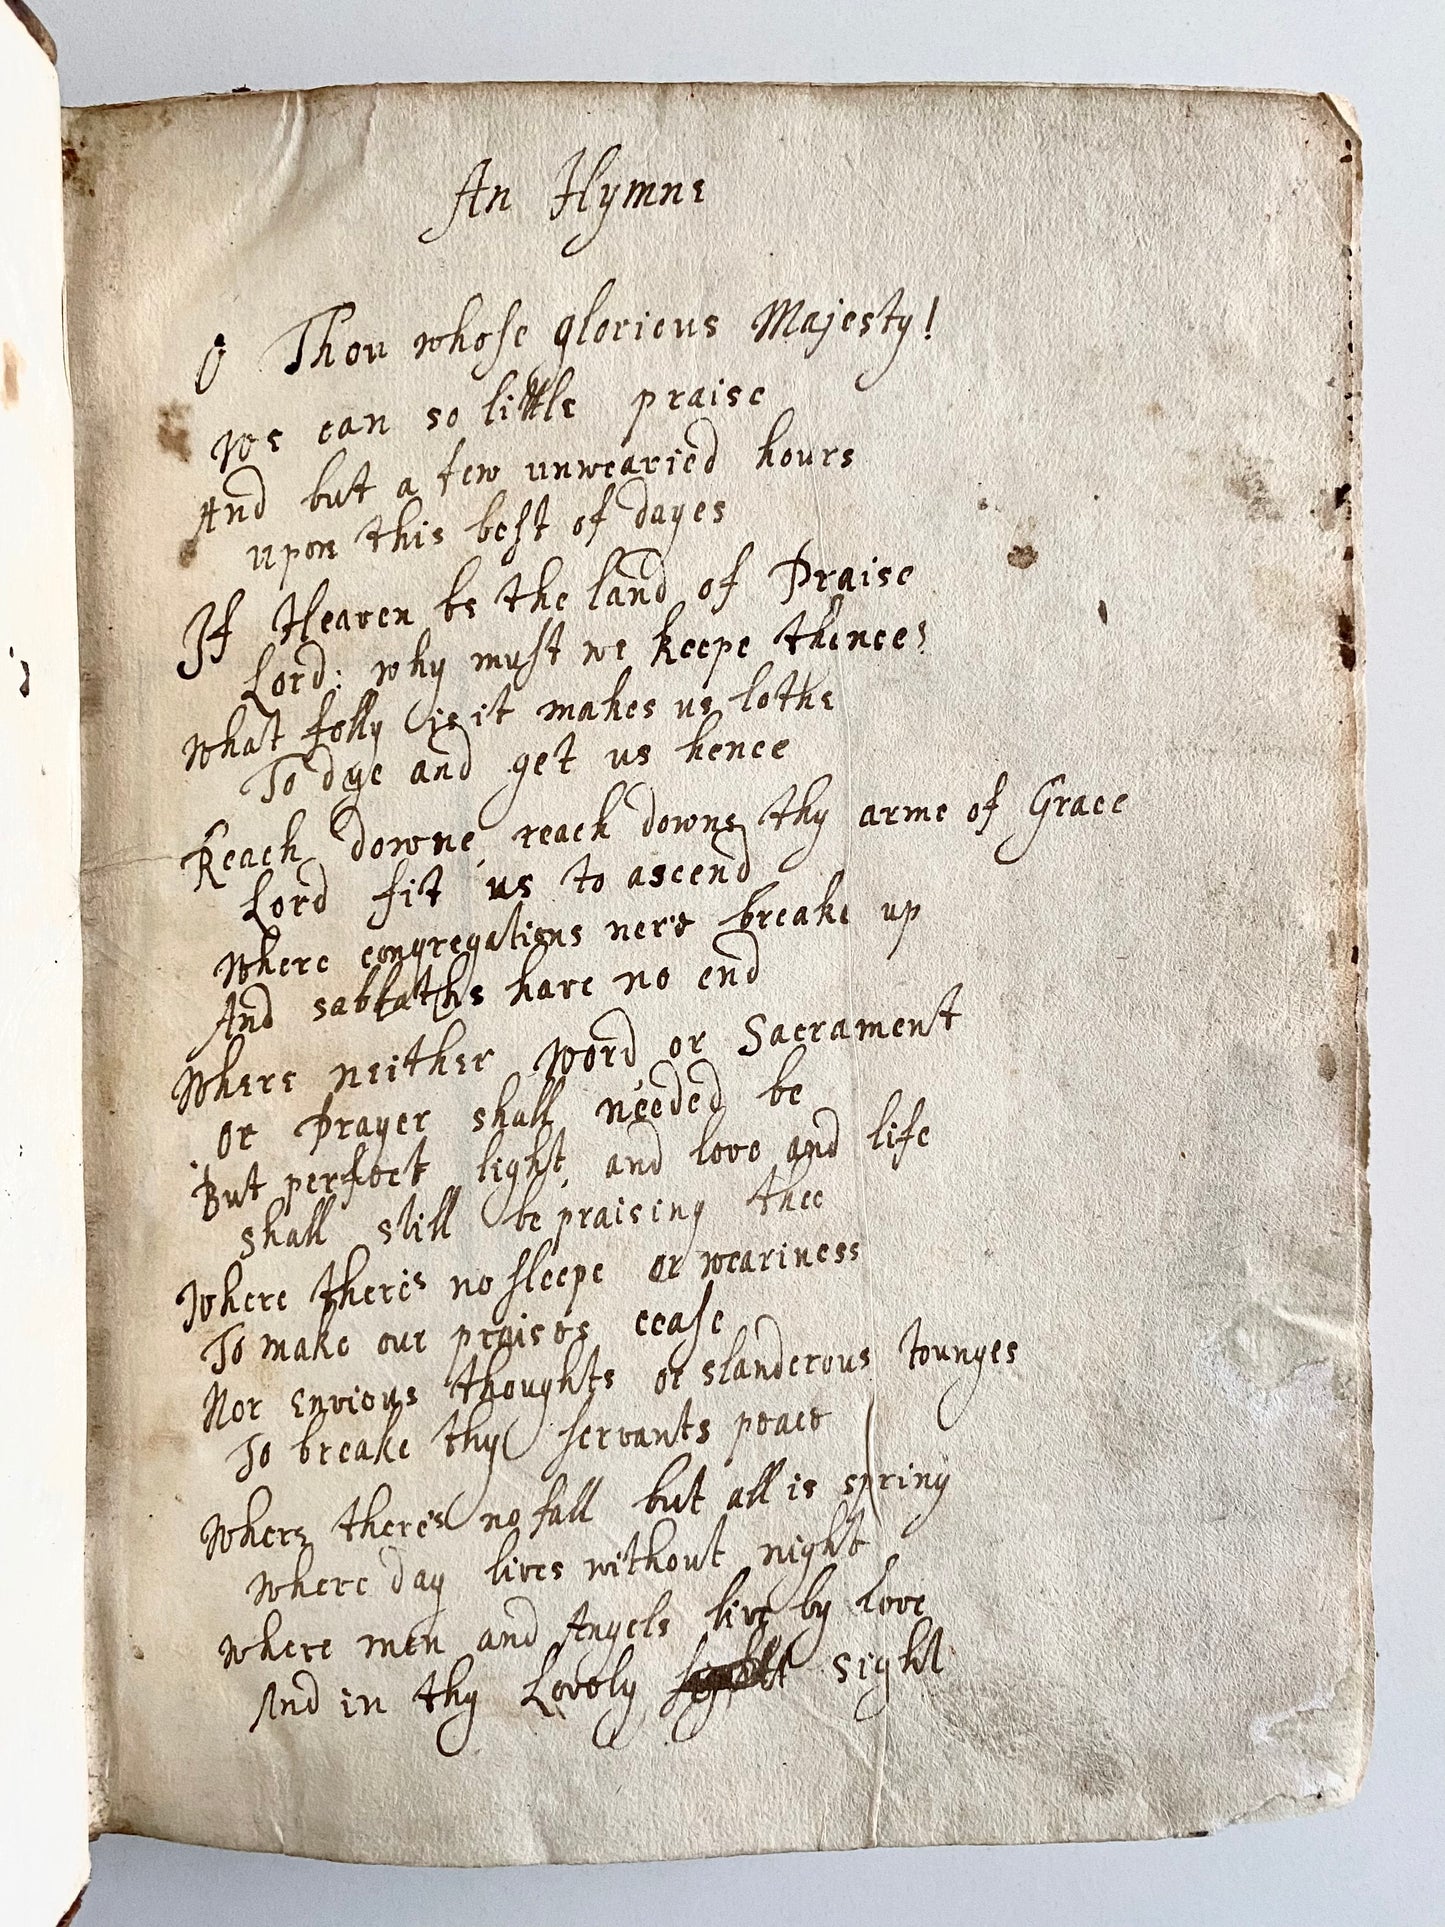 An Hymne
O Thou whose glorious Majesty!
We can so little praise
And but a few unwearied hours
upon this best of dayes
If Heaven be the land of Praise
Lord: why must we keepe thence?
What folly is it makes us lothe
To dye and get us hence
Reach downe reach downe thy arme of Grace
Lord fit us to ascend
Where congregations ne're breake up
And sabbaths have no end
Where neither Word or Sacrament
Or Prayer shall needed be
But perfect light and love and life
shall still be praising thee
Where there's no sleepe or weariness
To make our praises cease
Nor envious thoughts or slanderous tounges
To breake thy servants peace
Where there's no fall but all is spring
Where day lives without night
Where men and Angels live by Love
And in thy Lovely sight